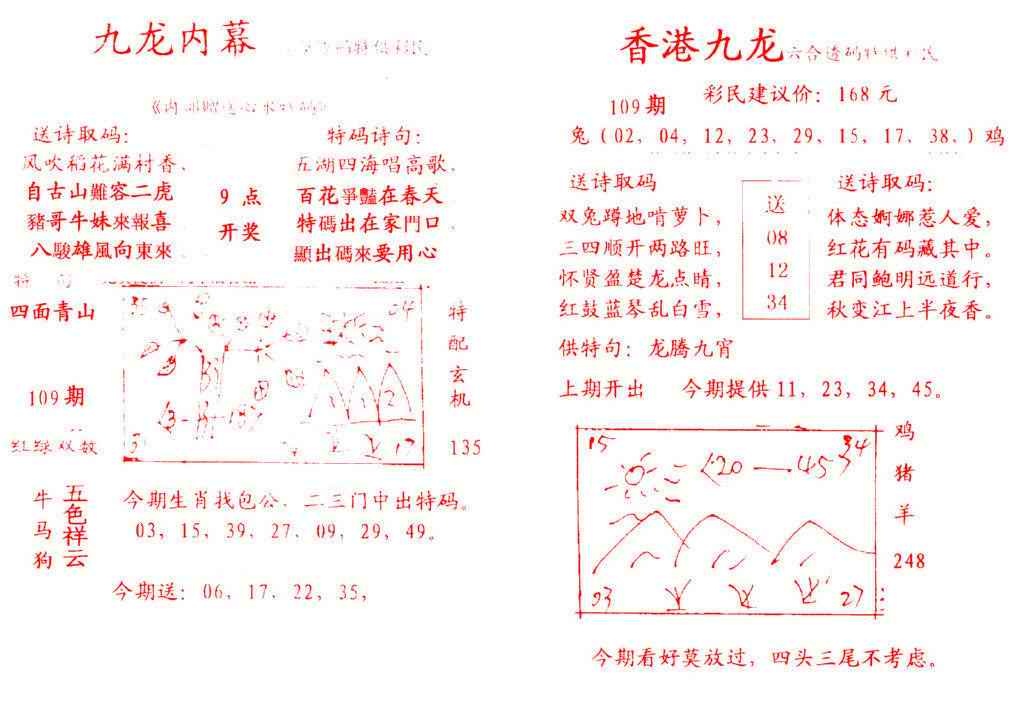 九龙内幕
送诗取码：
风吹稻花满村香、
自古山難容二虎
豬哥牛妹來報喜
八駿雄風向東來
9 点
开奖
特码诗句：
五湖四海唱高歌、
百花爭豔在春天
特碼出在家門口
顯出碼來要用心
四面青山
109期
红绿双数
04
12
17
特配玄机
135
牛
马
狗
五色祥云
今期生肖找包公、二三门中出特码。
03, 15, 39, 27, 09, 29, 49。
今期送：06, 17, 22, 35,
香港九龙
109期
彩民建议价：168元
兔（02, 04, 12, 23, 29, 15, 17, 38,）鸡
送诗取码
双兔蹲地啃萝卜，
三四顺开两路旺，
怀贤盈楚龙点睛，
红鼓蓝琴乱白雪，
送
08
12
34
送诗取码：
体态婀娜惹人爱，
红花有码藏其中。
君同鲍明远道行，
秋变江上半夜香。
供特句：龙腾九宵
上期开出 今期提供11, 23, 34, 45。
15
34
20—45
03
27
鸡
猪
羊
248
今期看好莫放过，四头三尾不考虑。